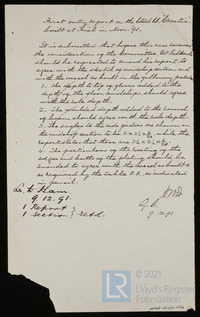 First entry report on the steel
built at Trieste in Nov. 91.
It is submitted that before this case receives
the consideration of the Committee, Mr
should be requested to amend his report to
agree with the sketch of midship section and
with the vessel as built in the following points
1. The depth to top of floors added to the
depth of the floor amidships, should agree
with the rule depth.
2. The moulded depth added to the round
of beam should agree with the rule depth.
3. The angles to the side girders are shown in
the midship section to be while the
report states that these are
4. The particulars of the riveting of the
edges and butts of the plating should be
amended to agree with the vessel as built &
as required by the Table P.E. as indicated
in pencil.
9.12.91.
1 Report
1 section } retd.
9.12.91
© 2021
Lloyd's Register
FOUNDATION